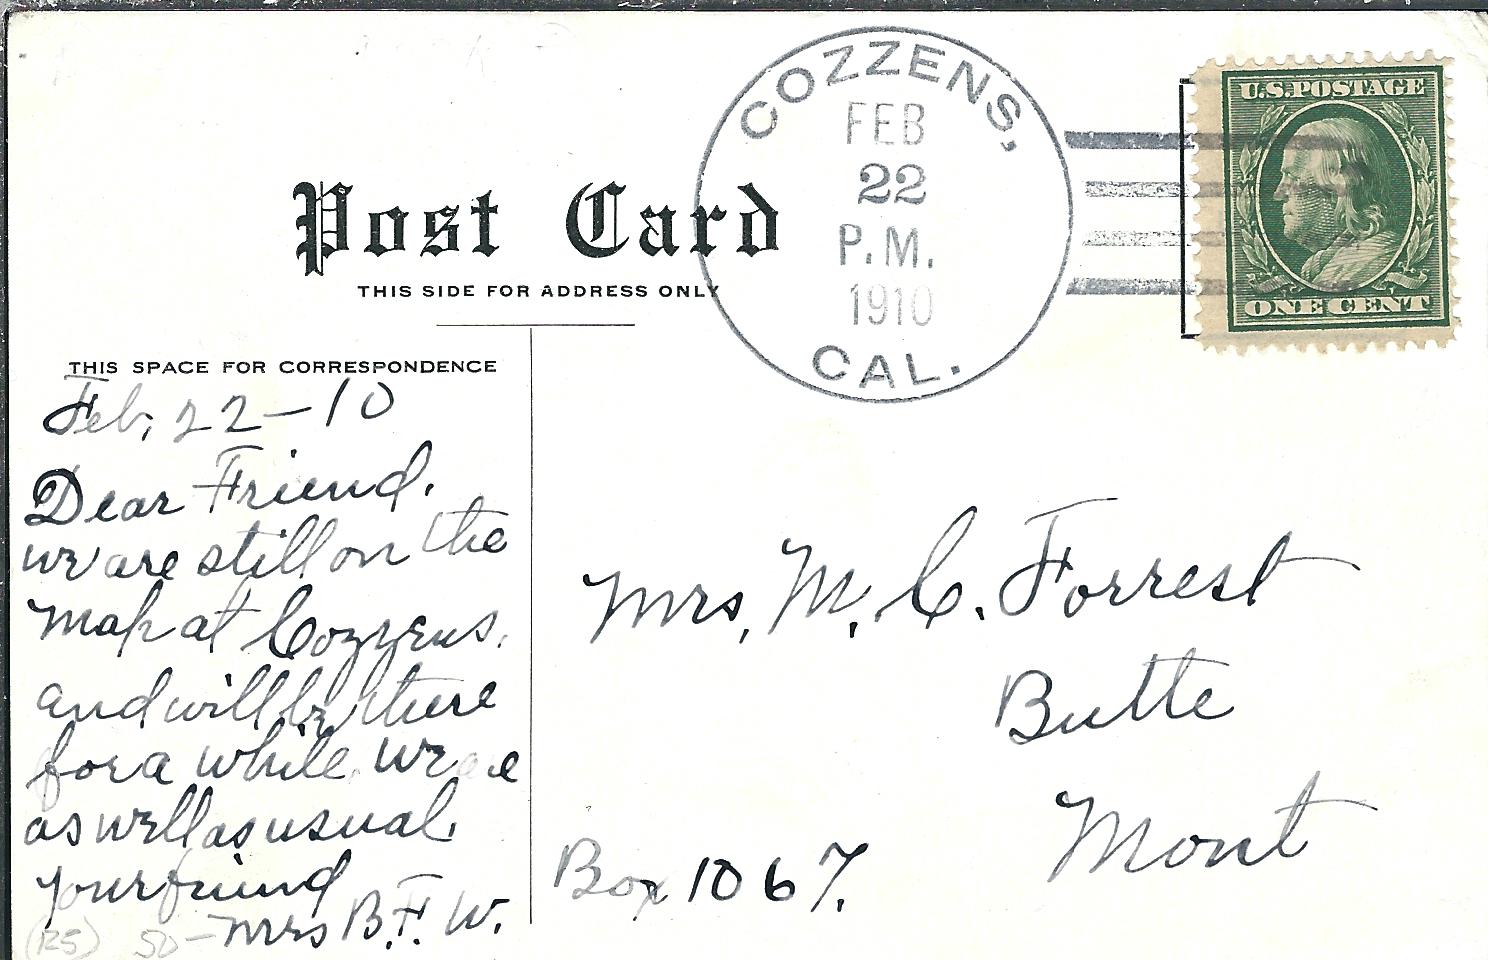 COZZENS,
FEB
22
P.M.
1910
CAL.
U.S.POSTAGE
ONE CENT
Post Card
THIS SIDE FOR ADDRESS ONLY
THIS SPACE FOR CORRESPONDENCE
Feb, 22-10
Dear Friend.
we are still on the
map at Cozzens.
and will be there
for a while. we are
as well as usual.
your friend
Mrs B.F. W.
(RS) 50-
Mrs, M, C. Forrest
Butte
Mont
Box 1067.